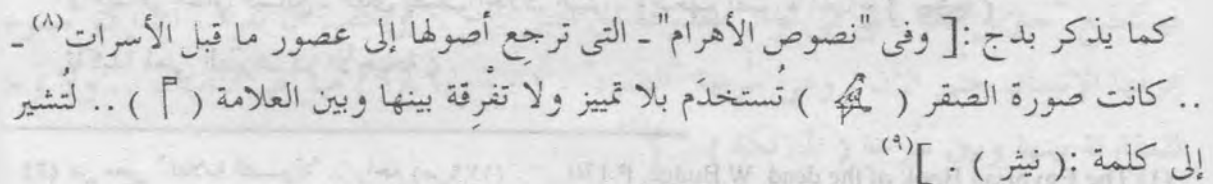 كما يذكر بدج :[ وفى "نصوص الأهرام" ـ التى ترجِع أصولها إلى عصور ما قبل الأسرات(٨) ـ
.. كانت صورة الصقر ( 𓅆 ) تُستخدَم بلا تمييز ولا تفْرِقة بينها وبين العلامة ( 𓊹 ) .. لتُشير
إلى كلمة :( نيثر ) . ](٩)